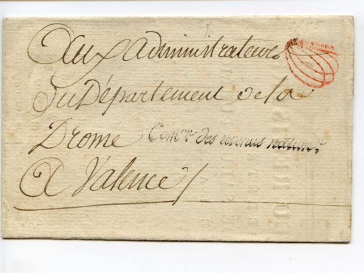 Aux Administrateurs
Du Département de la
Drome Com.on des revenus nation.x
A Valence